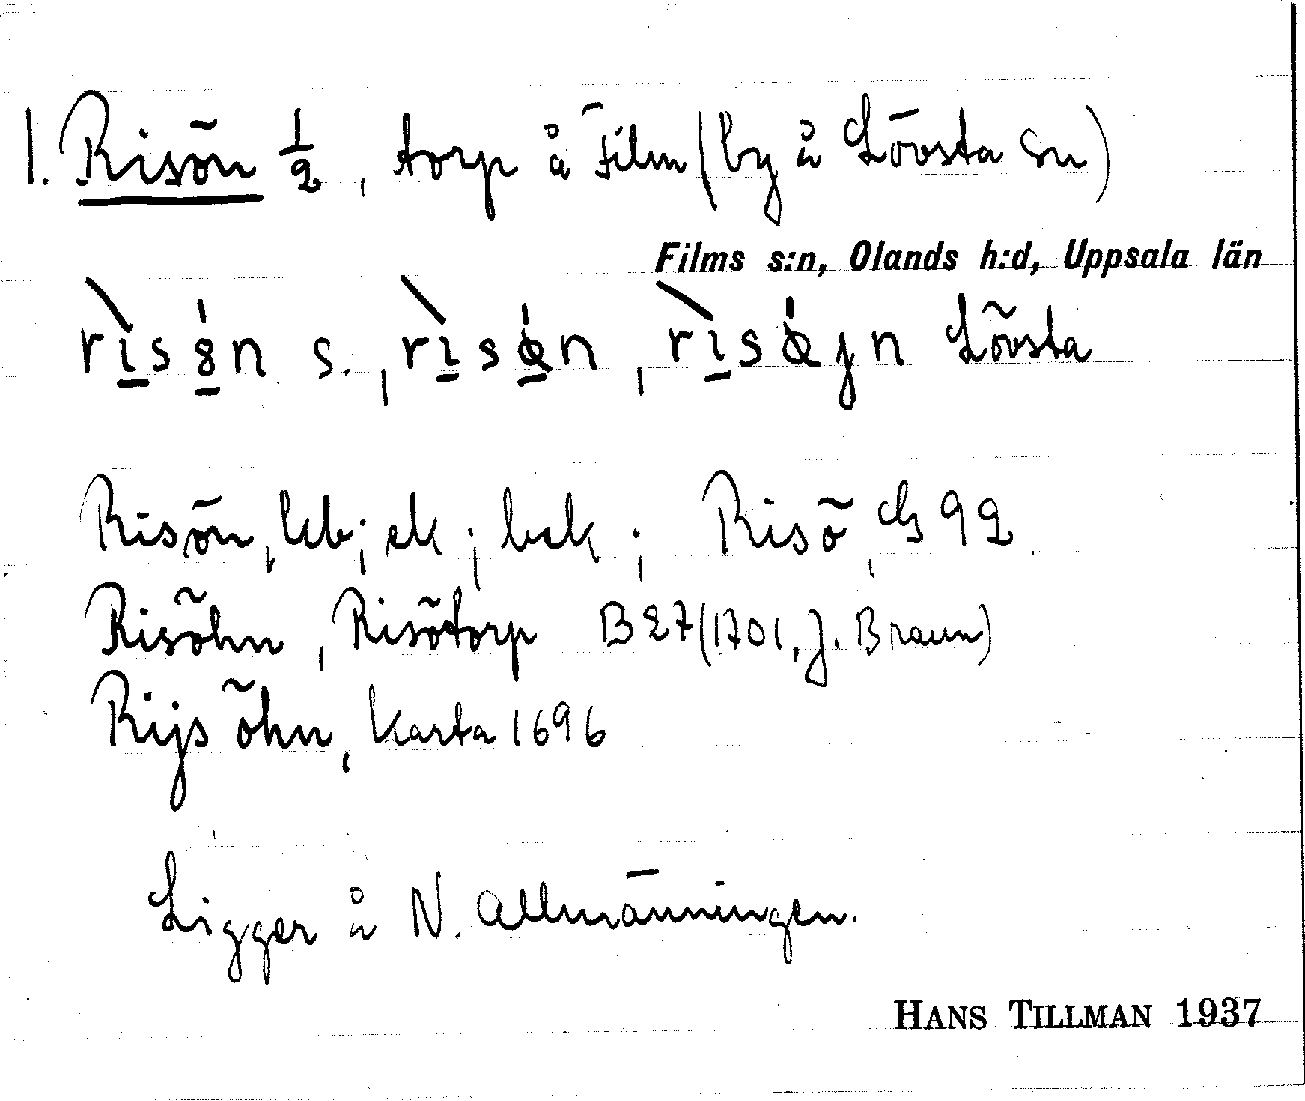 1. Risön ½, torp å Film (by å Lövsta sn)
Films s:n, Olands h:d, Uppsala län
rìsön s., rìsøn, rìsøjn Lövsta
Risön, kb; ek; bsk; Risö, G 92
Risöhn, Risötorp B 27 (1701, J. Braun)
Rijs öhn, karta 1696
Ligger å N. Allmänningen.
HANS TILLMAN 1937